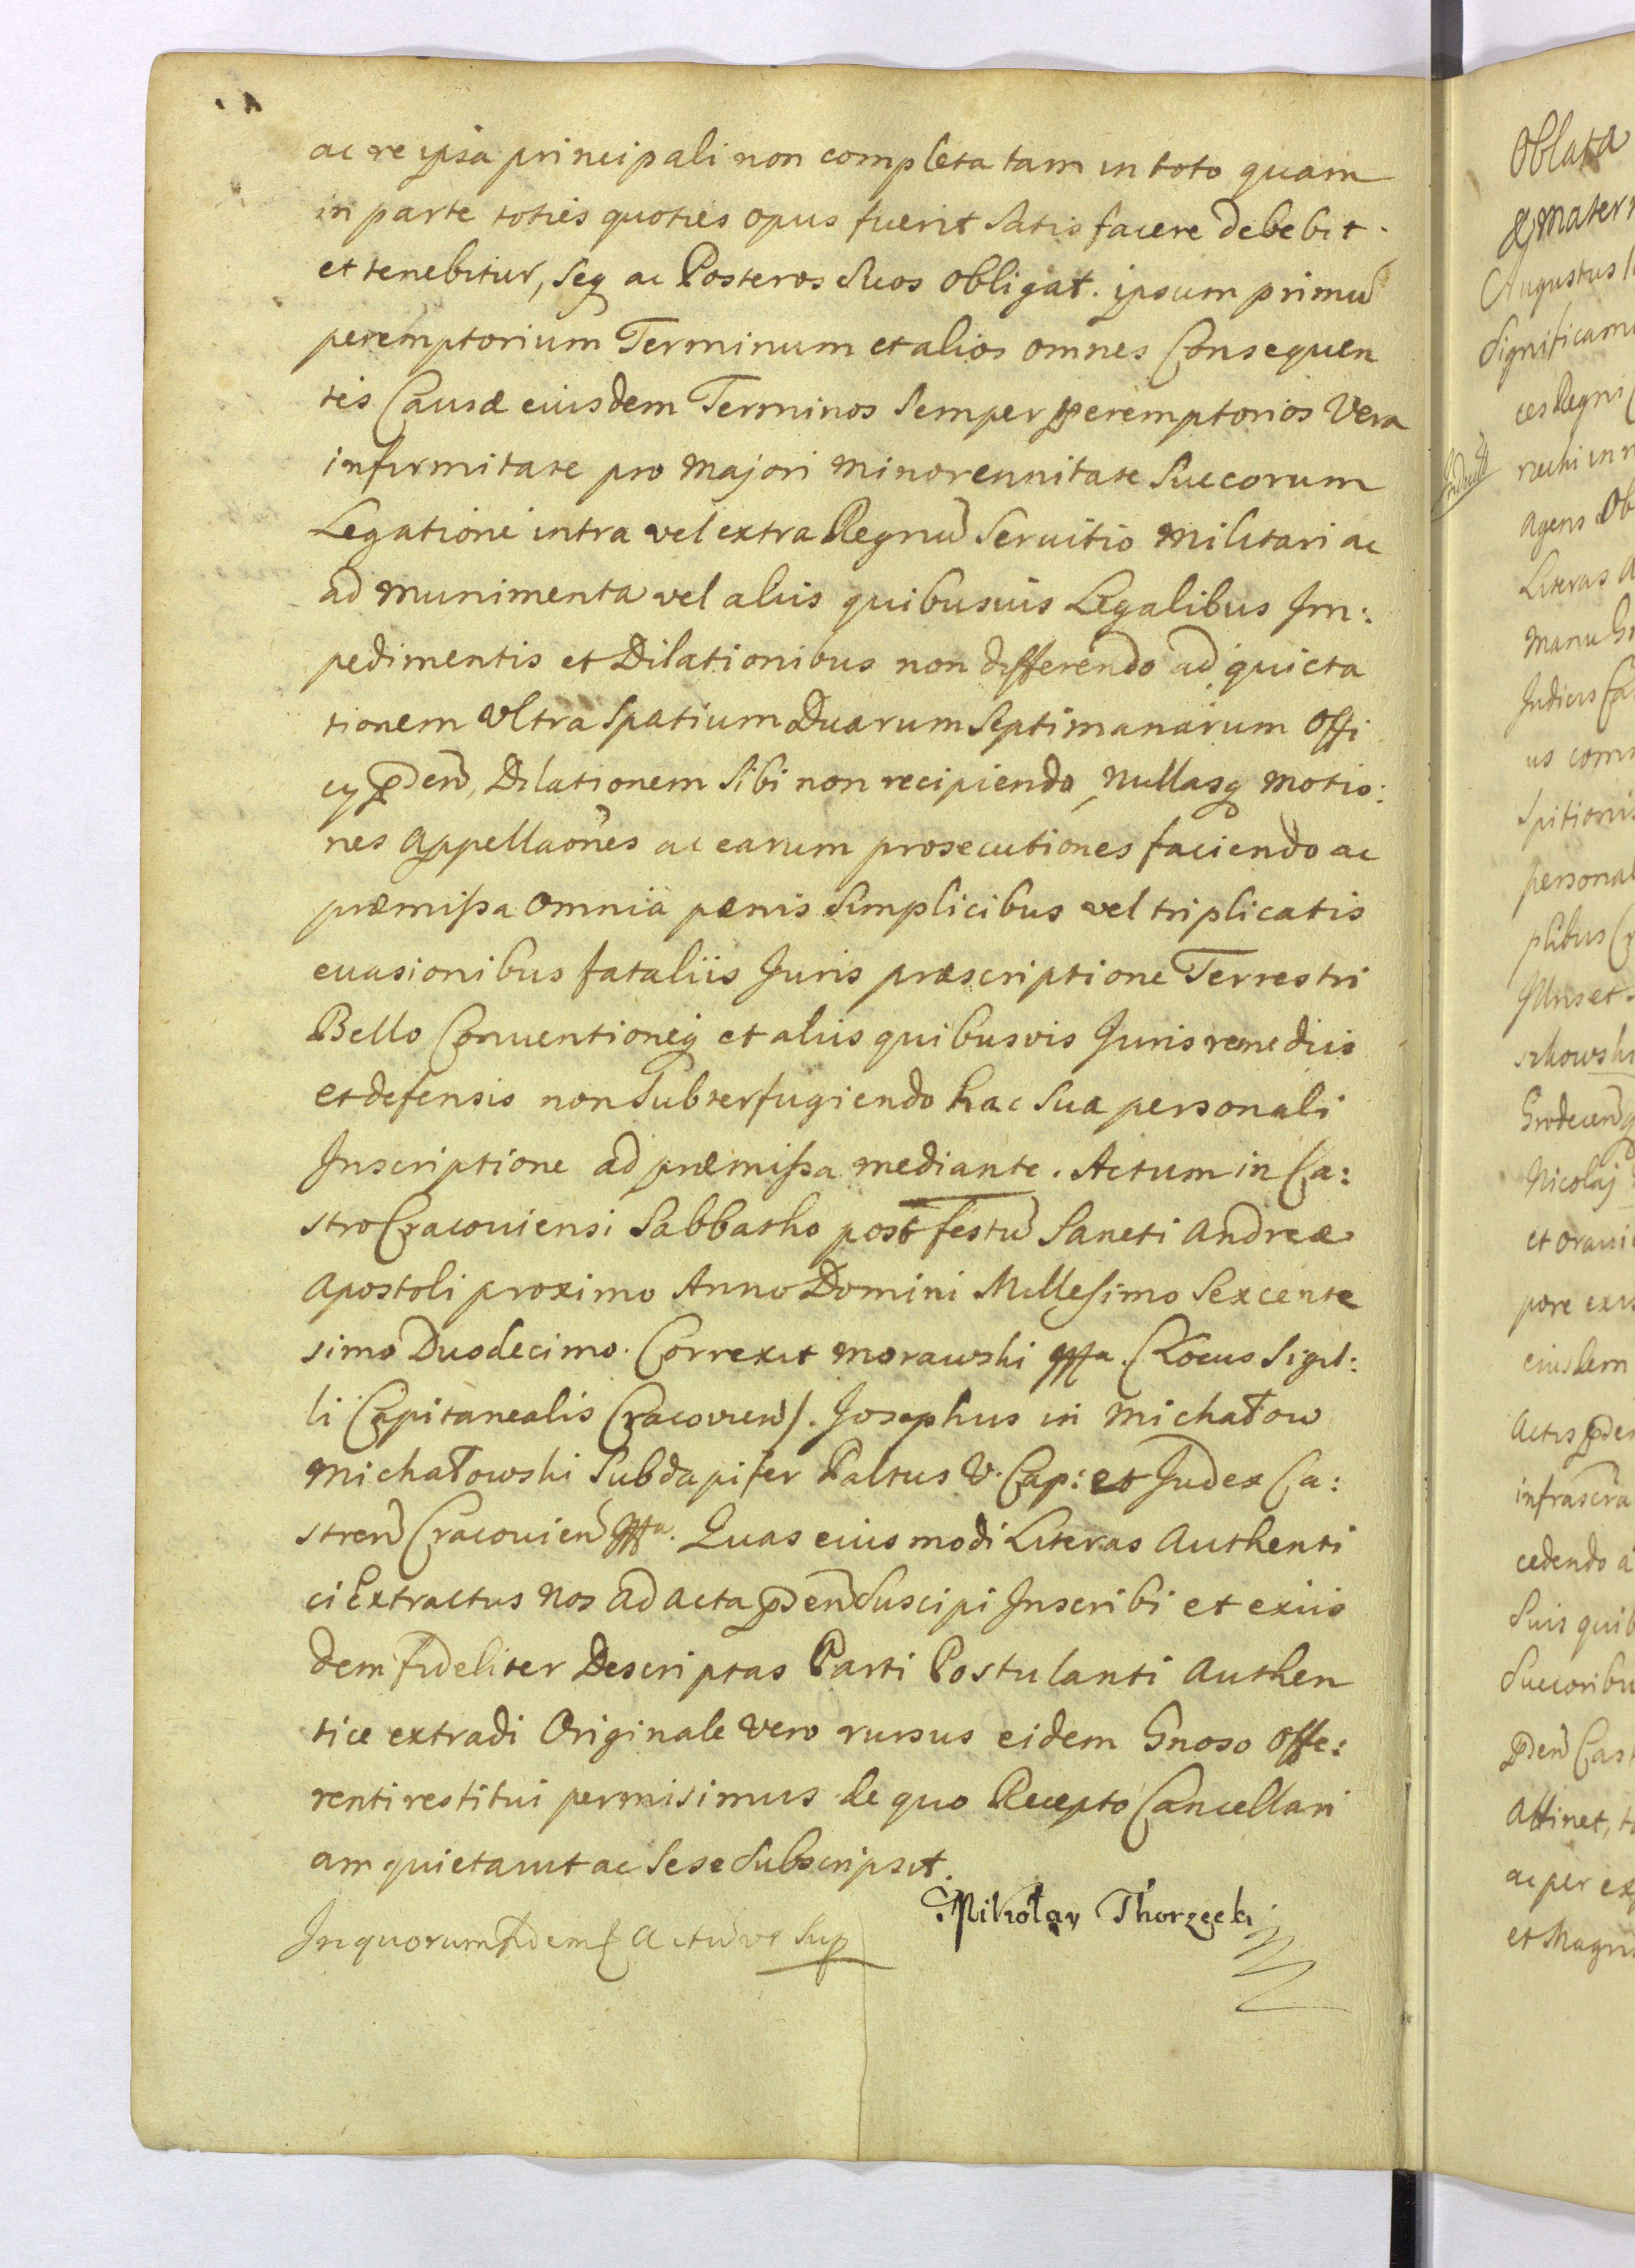 ac re ipsa principali non completa tam in toto quam
in parte toties quoties opus fuerit Satis facere debebit.
et tenebitur, Seq ac Posteros Suos obligat. ipsum primũ
peremptorium Terminum et alios omnes Consequen
tis Causæ eiusdem Terminos Semper peremptorios Vera
infirmitate pro Majori Minorennitate Succorum
Legatione intra vel extra Regnũ Servitio Militari ac
ad Munimenta vel aliis quibusuis Legalibus Im:
pedimentis et Dilationibus non differendo ad quieta
tionem Vltra Spatium Duarum Septimanarum Offi
cy Pden̄, Dilationem Sibi non recipiendo, Nullasq Motio:
nes Appellaões ac earum prosecutiones faciendo ac
præmissa Omnia pænis Simplicibus vel triplicatis
euasionibus fataliis Juris præscriptione Terrestri
Bello Conuentioneq et aliis quibusvis Juris remediis
et defensis non Subterfugiendo hac Sua personali
Inscriptione ad præmissa mediante. Actum in Ca:
stro Cracouiensi Sabbatho post festũ Sancti Andreæ
Apostoli proximo Anno Domini Millesimo Sexcente
simo Duodecimo. Correxit Morawski (Locus Sigil:
li Capitanealis Cracovien̄). Josephus in Michałow
Michałowski Subdapifer Paltus V. Cap: et Judex Ca:
stren̄ Cracouien̄ Quas eiusmodi Literas Authenti
ci Extractus Nos ad Acta Pden̄ Suscipi Inscribi et exiis
dem fideliter Descriptas Parti Postulanti Authen
tice extradi Originale Vero rursus eidem Gnoso Offe:
renti restitui permisimus de quo Recepto Cancellari
am quietauit ac Sese Subscripsit.
Mikołay Thorzecki
In quorum fidem Actũ vt Sup
Oblata
Augustus
Significam
ces Regni
Agens Ob
Literas A
Manu
us com
Spitionis
personal
et
Nicolaj
et oraui
pore exis
eiusdem
Actis Pden
infrascra
cedendo a
Suis quib
Succoribu
Pden̄ Cas
Attinet,
ac per ex
et Magni